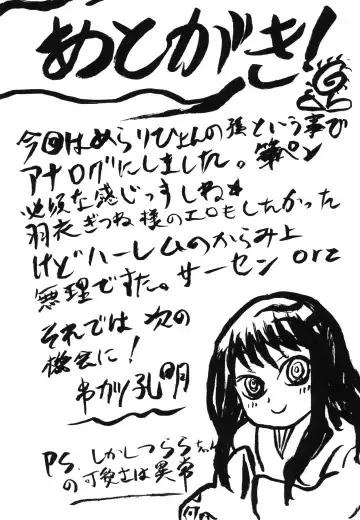 あとがき!
今回はぬらりひょんの孫という事で
アナログにしました。筆ペン
必須な感じっすしね★
羽衣ぎつね様のエロもしたかった
けどハーレムのからみ上
無理ですた。サーセン orz
それでは次の
機会に!
串カツ孔明
PS. しかしつららちゃん
の可愛さは異常